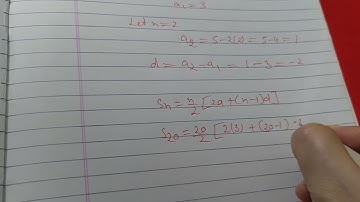 a₁ = 3
Let n = 2
a₂ = 5 - 2(2) = 5 - 4 = 1
d = a₂ - a₁ = 1 - 3 = -2
Sn = n/2 [2a + (n-1)d]
S₂₀ = 20/2 [2(3) + (20-1)